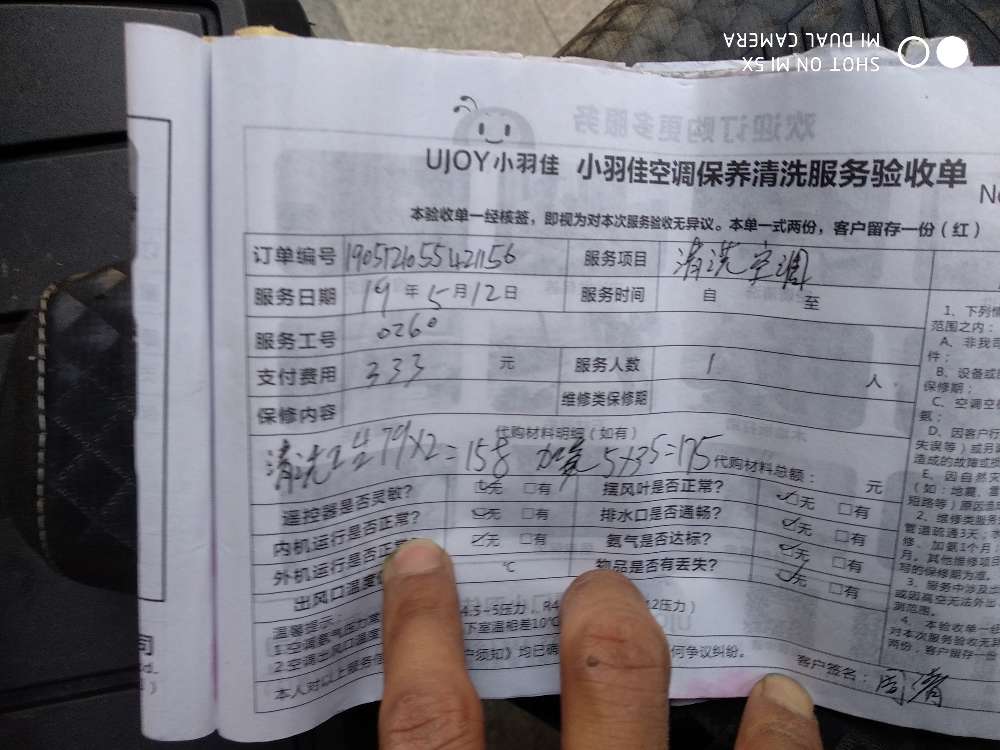 SHOT ON MI 5X
MI DUAL CAMERA
欢迎订购更多服务
UJOY小羽佳 小羽佳空调保养清洗服务验收单
本验收单一经核签，即视为对本次服务验收无异议。本单一式两份，客户留存一份（红）
订单编号 服务项目 清洗空调
服务日期 19年5月12日 服务时间 自 至
服务工号 0260
支付费用 333 元 服务人数 1 人
保修内容 维修类保修期
代购材料明细（如有）
清洗 79X2=158 加氨 5X35=175 代购材料总额： 元
遥控器是否灵敏? ☑无 □有 摆风叶是否正常? ☑无 □有
内机运行是否正常? ☑无 □有 排水口是否通畅? ☑无 □有
外机运行是否正常? ☑无 □有 氨气是否达标? ☑无 □有
出风口温度 ℃ 物品是否有丢失? ☑无 □有
温馨提示：
1.空调氨气压力 4.5-5压力，R4 12压力）
2.空调出风口温度 下室温相差10℃
本人对以上服务 户须知》均已确 何争议纠纷。
客户签名：周清
1、下列情
范围之内：
A、非我司
件；
B、设备或
保修期；
C、空调空
氨；
D、因客户行
失误等）或另
造成的故障或
E、因自然灾
（如：地震、雷
短路等）原因
2、维修类服
管道疏通3天，水
修，加氨1个月
月。其他维修项目
写的保修期为准。
3、服务中涉及
或因高空无法外出
测范围。
4、本验收单一经
对本次服务验收无异
两份，客户留存一
司
td.